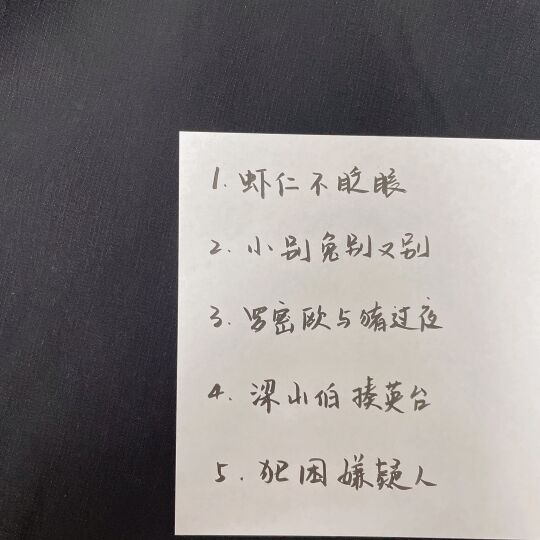 1. 虾仁不眨眼
2. 小别兔别又别
3. 罗密欧与猪过夜
4. 梁山伯揍英台
5. 犯困嫌疑人